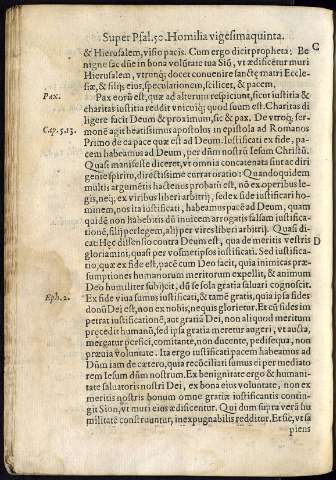 Super Psal.50. Homilia vigesimaquinta.
& Hierusalem, visio pacis. Cum ergo dicit propheta: Be
C
nigne fac dñe in bona volũtate tua Siõ, vt ædificẽtur muri
Hierusalem, vtrunq; docet conuenire sanctę matri Eccle-
siæ, & filijs eius, speculationem, scilicet, & pacem.
Pax.
Pax eorũ est, quæ ad alterum respiciunt, sicut iustitia &
charitas iustitia reddit vnicuiq; quod suum est. Charitas di
ligere facit Deum & proximum, sic & pax. De vtroq; ser-
Cap. 5. 13.
monẽ agit beatissimus apostolus in epistola ad Romanos
Primo de ea pace quæ est ad Deum. Iustificati ex fide, pa-
cem habeamus ad Deum, per dñm nostrũ Iesum Christũ.
Quasi manifeste diceret, vt omnia concatenata sint ac diri
gente spiritu, directissime currat oratio: Quandoquidem
multis argumẽtis hactenus probatũ est, nõ ex operibus le-
gis, neq; ex viribus liberi arbitrij, sed ex fide iustificari ho-
minem, nos ita iustificati, habeamus pacẽ ad Deum, quam
quidẽ non habebitis dũ inuicem arrogatis falsam iustifica-
tionẽ, filij per legem, alij per vires liberi arbitrij. Quasi di-
cat: Hęc dissensio contra Deum est, qua de meritis vestris
D
gloriamini, quasi per vosmetipsos iustificati. Sed iustifica-
tio, quæ ex fide est, pacẽ cum Deo facit, quia inimicas præ-
sumptiones humanorum meritorum expellit, & animum
Deo humiliter subijcit, dũ se sola gratia saluari cognoscit.
Eph. 2.
Ex fide viua sumus iustificati, & tamẽ gratis, quia ipsa fides
donũ Dei est, non ex nobis, ne quis glorietur. Et cũ fides im
petrat iustificationẽ, aut gratia Dei, non aliquod meritum
pręcedit humanũ, sed ipsa gratia meretur augeri, vt aucta,
mergatur perfici, comitante, non ducente, pedisequa, non
præuia voluntate. Ita ergo iustificati pacem habeamus ad
Dũm iam de cætero, quia reconciliati sumus ei per mediato
rem Iesum dñm nostrum. Ex benignitate ergo & humani-
tate saluatoris nostri Dei, ex bona eius voluntate, non ex
meritis nostris bonum omne gratiæ iustificantis contin-
git Sion, vt muri eius ædificentur. Qui dum supra verã hu
militatẽ construuntur, inexpugnabilis redditur. Et sic, vt sa
piens